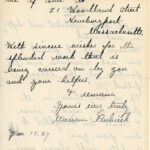 21 Woodland Street
Newburyport
Massachusetts.
With sincere wishes for the
splendid work that is
being carried on by you
and your helpers,
I remain
Yours very truly
Marian
Jan 15. 27